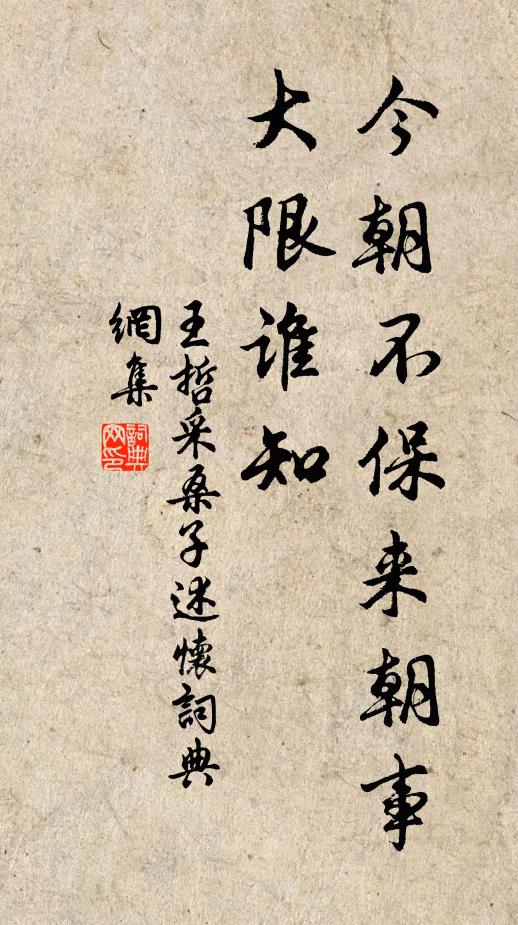 今朝不保来朝事
大限谁知
王哲采桑子述懷詞典
網集
詞典
网印